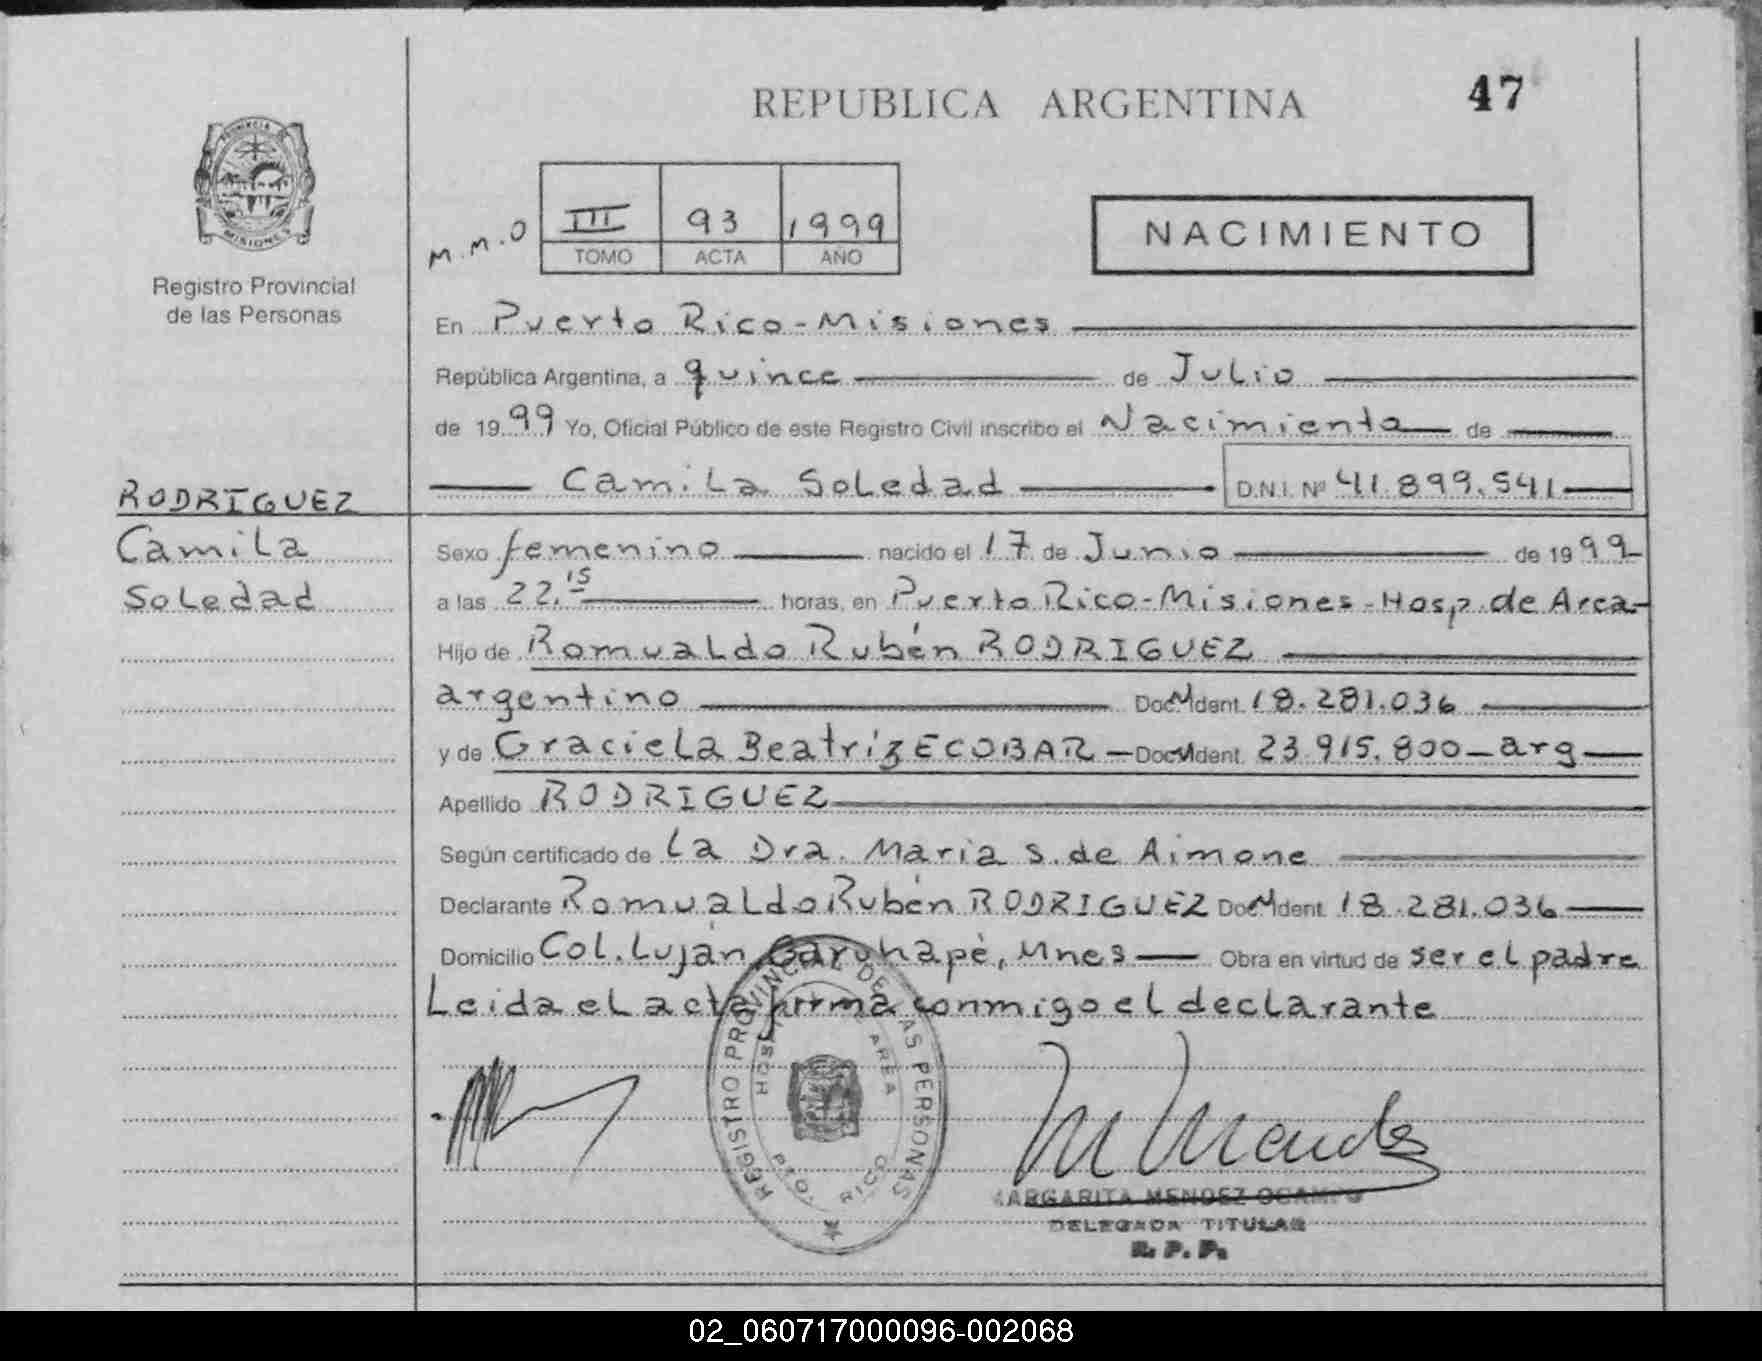 47
REPUBLICA ARGENTINA
PROVINCIA DE
MISIONES
Registro Provincial
de las Personas
M.M.O
III 93 1999
TOMO ACTA AÑO
NACIMIENTO
En Puerto Rico-Misiones
República Argentina, a quince de Julio
de 1999 Yo, Oficial Público de este Registro Civil inscribo el Nacimiento de
Camila Soledad D.N.I. Nº 41.899.541
RODRIGUEZ
Camila
Soledad
Sexo femenino nacido el 17 de Junio de 1999
a las 22.15 horas, en Puerto Rico-Misiones-Hosp. de Area-
Hijo de Romualdo Rubén RODRIGUEZ
argentino Doc. Ident. 18.281.036
y de Graciela Beatríz ECOBAR - Doc. Ident. 23.915.800 - arg
Apellido RODRIGUEZ
Según certificado de La Dra. María S. de Aimone
Declarante Romualdo Rubén RODRIGUEZ Doc. Ident. 18.281.036
Domicilio Col. Luján, Garuhapé, Mnes Obra en virtud de ser el padre
Leida el acta firma conmigo el declarante
REGISTRO PROVINCIAL DE LAS PERSONAS
HOSPITAL DE AREA
PTO. RICO
M Mendez
MARGARITA MENDEZ OCAMPO
DELEGADA TITULAR
R. P. P.
02_060717000096-002068